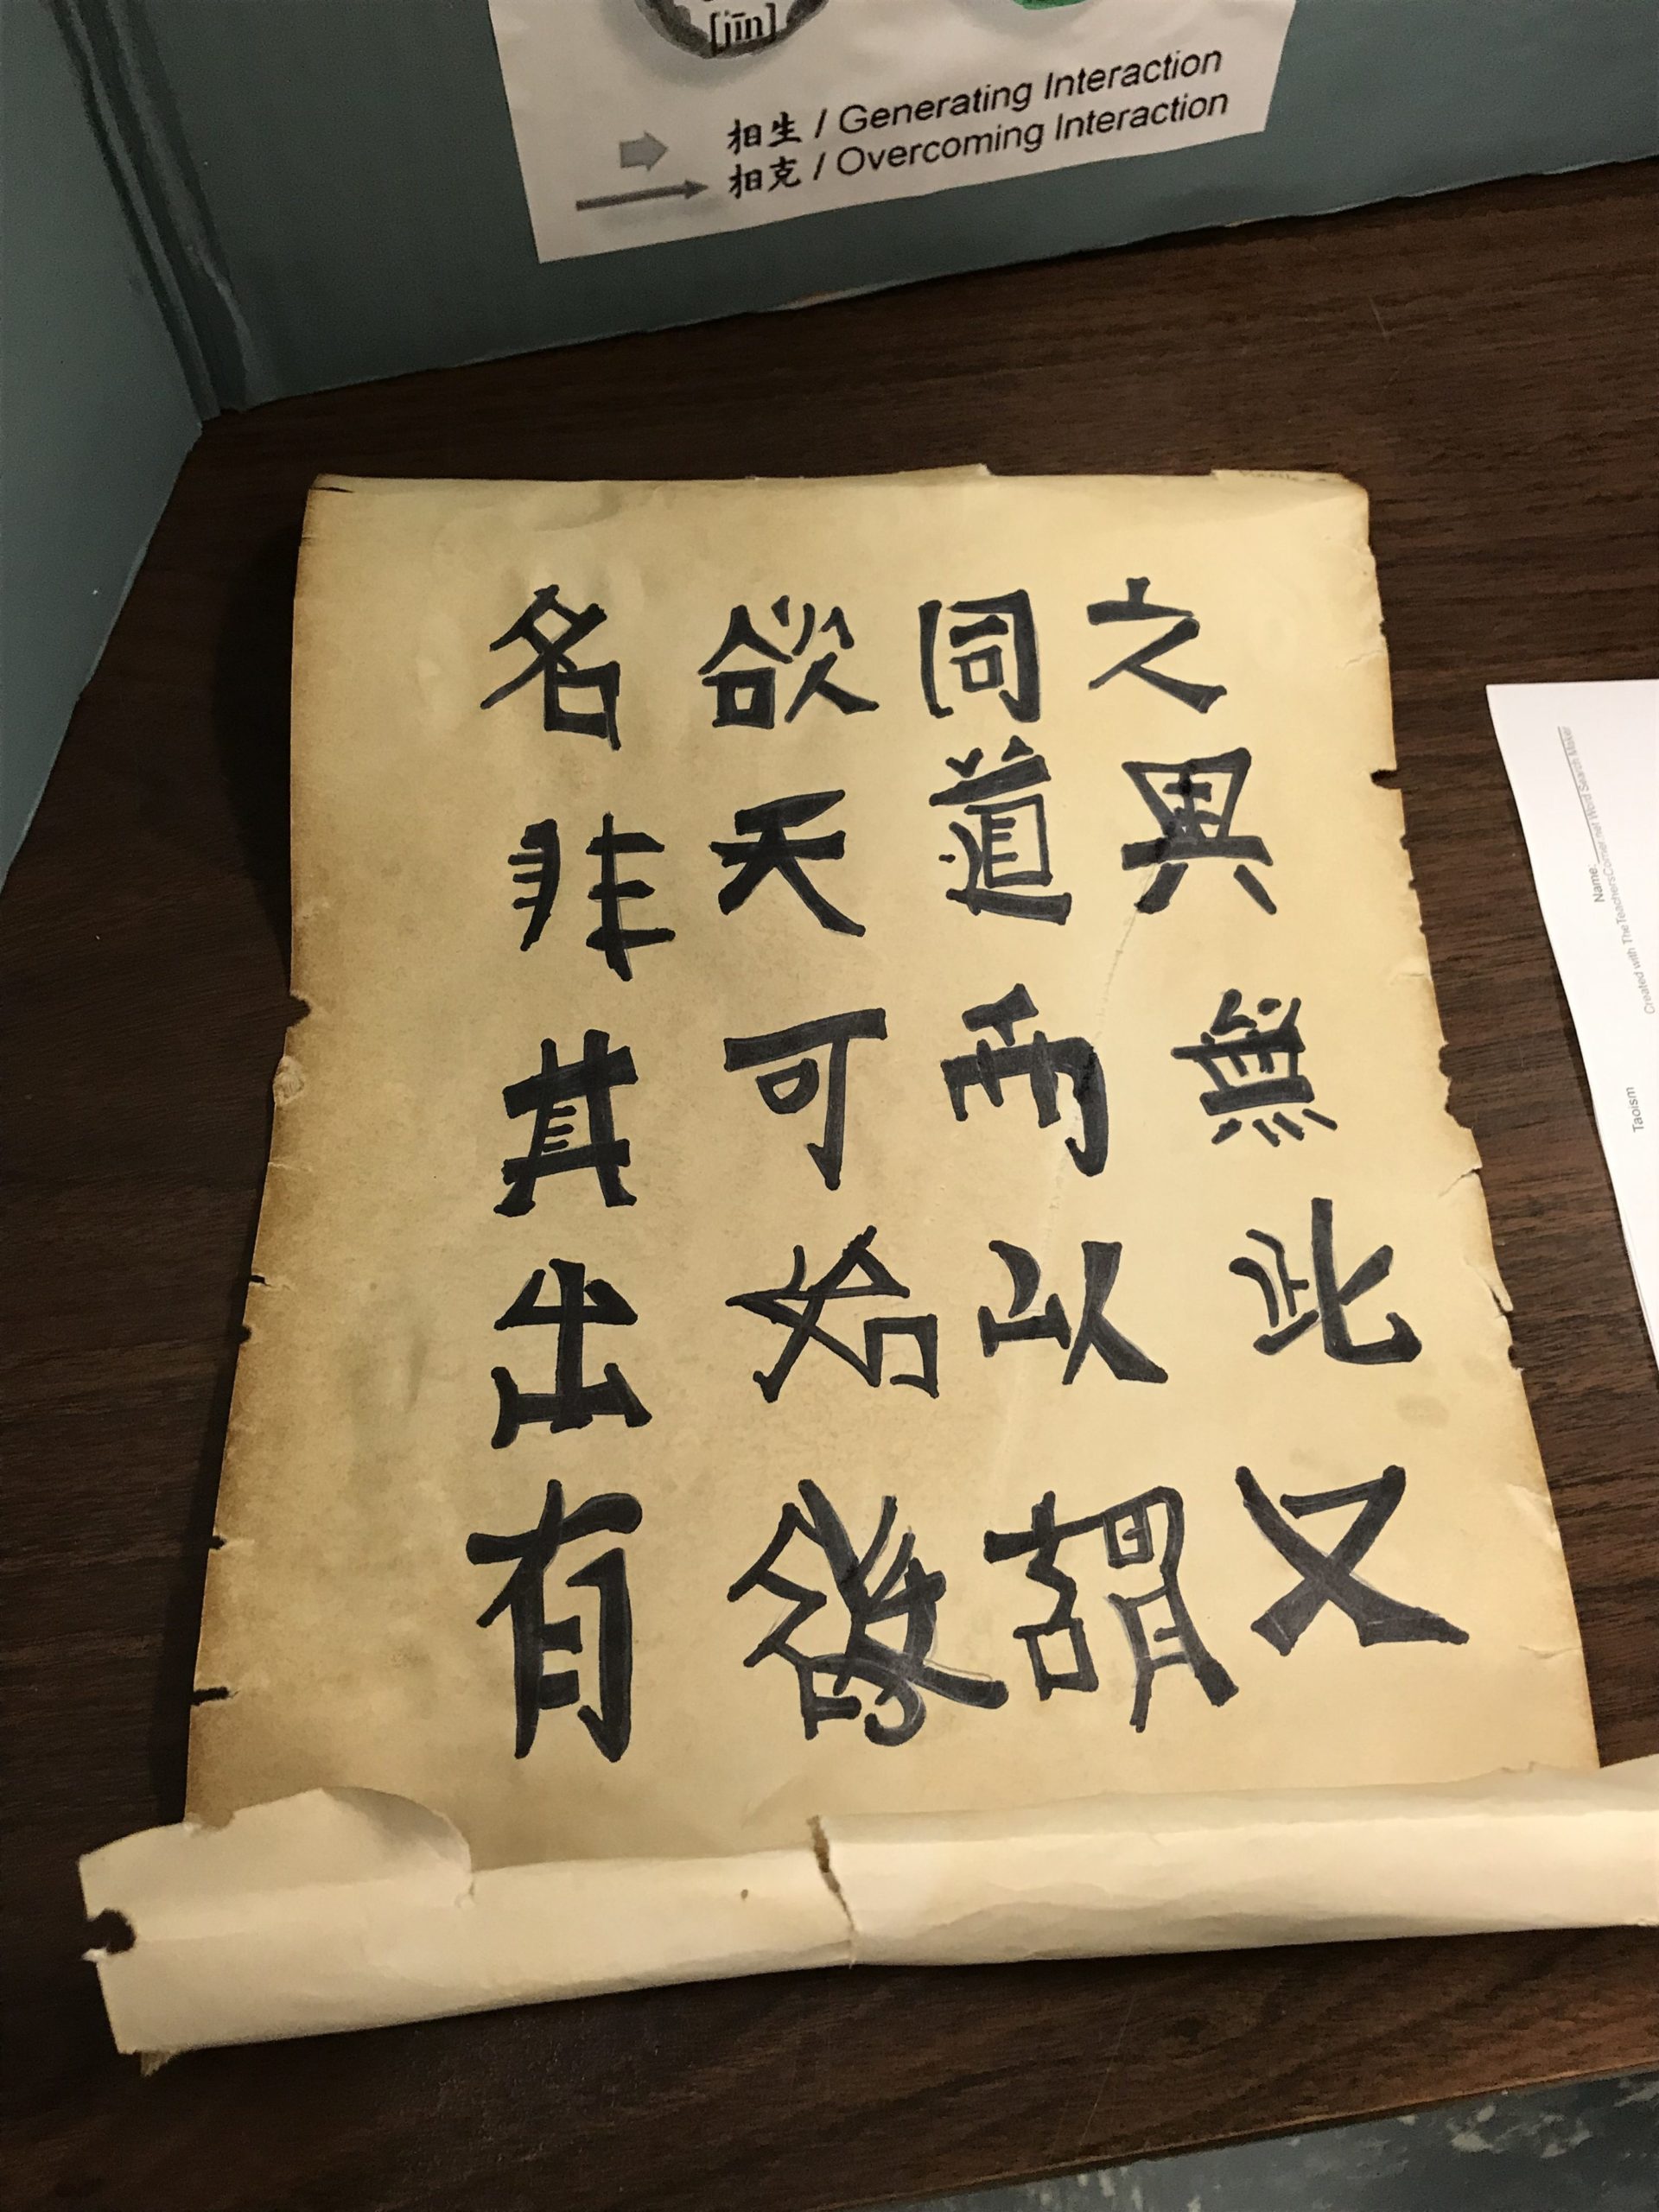 [jīn]
相生 / Generating Interaction
相克 / Overcoming Interaction
之異無此又
同道以謂
欲天可始
名非其出有
Name:
Created with TheTeachersCorner.net Word Search Maker
Taoism